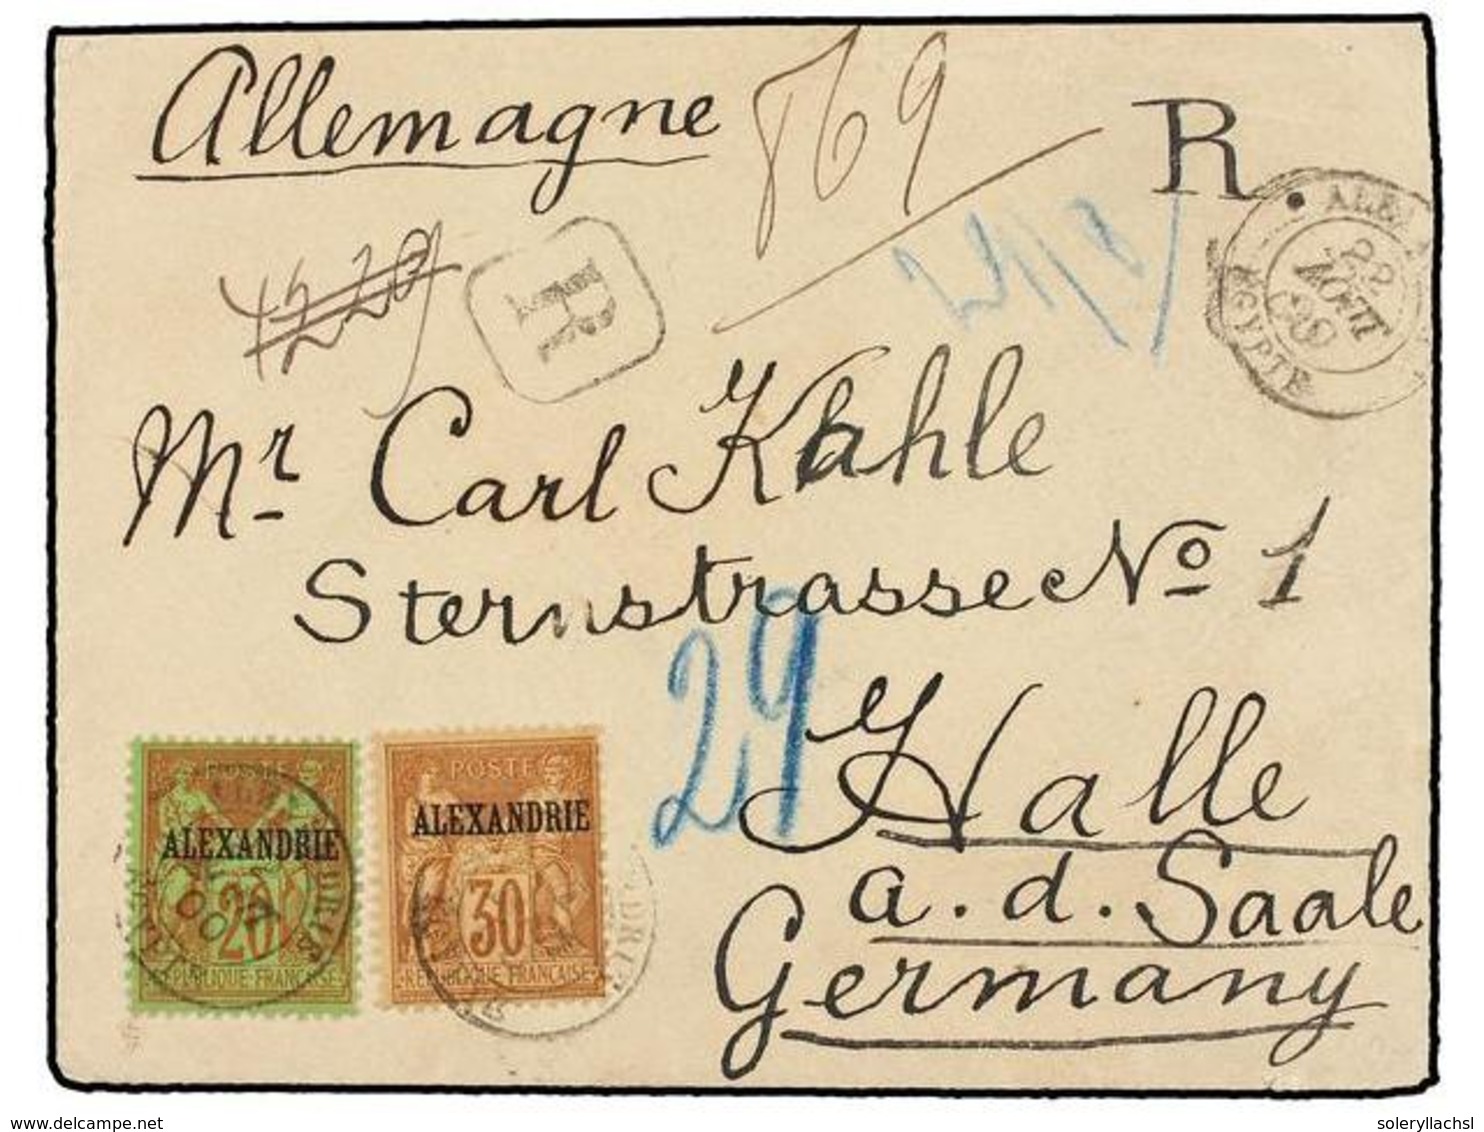 Allemagne
869
R
R
29
ÉGYPTE
22
AOUT
00
Mr Carl Kahle
Sternstrasse No 1
29
Halle
a. d. Saale
Germany
POSTE
ALEXANDRIE
20
RÉPUBLIQUE FRANÇAISE
POSTE
ALEXANDRIE
30
RÉPUBLIQUE FRANÇAISE
www.delcampe.net
soleryllachsl